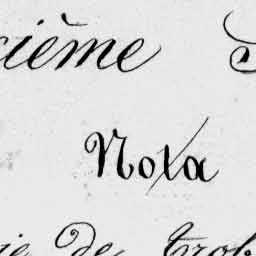 cième
Nota
ie de trob